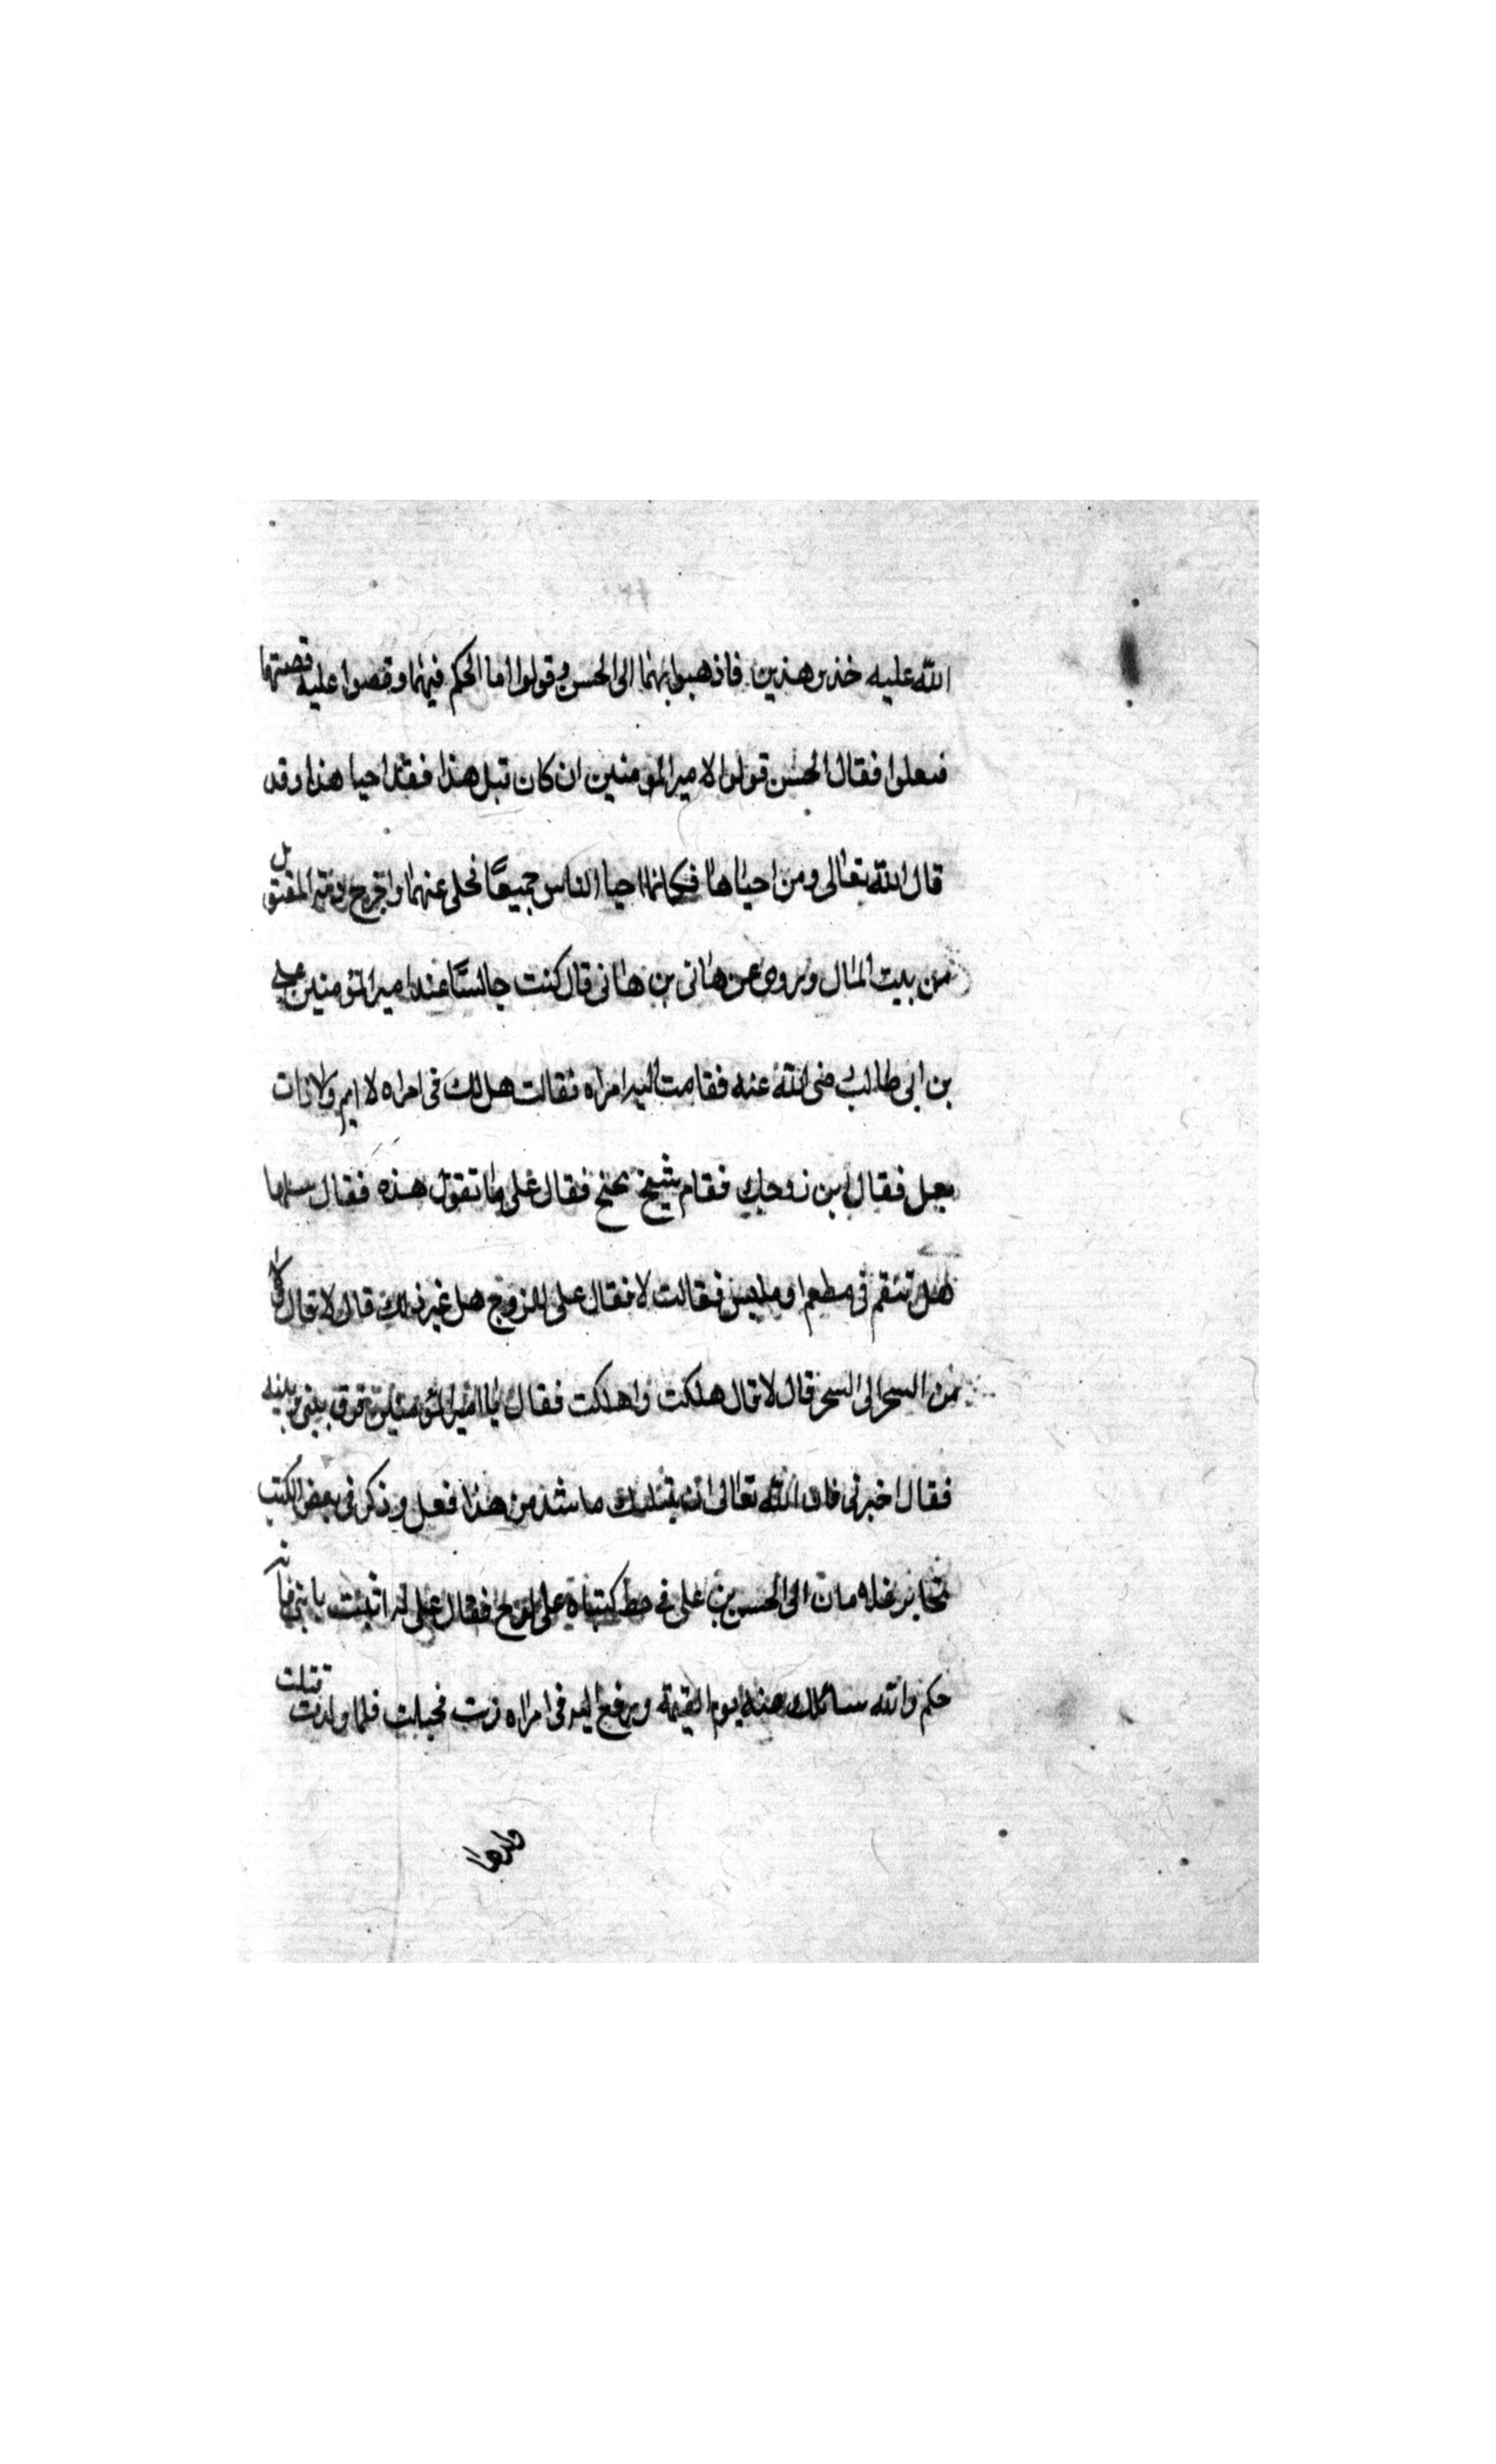 الله عليه خذين هذين فاذهبوا بهما الى الحسن وقولوا ما الحكم فيهما وقصوا عليه قصتهما
فعلوا فقال الحسن قولوا لامير المومنين ان كان قتل هذا فقد احيا هذا وقد
قال الله تعالى ومن احياها فكانما احيا الناس جميعًا فخلى عنهما واخرج دية المقتول
من بيت المال وروى عن هانى بن هانى قال كنت جالسًا عند امير المؤمنين على
بن ابى طالب رضى الله عنه فقامت اليه امراه فقالت هل لك فى امراه لا ايم ولا ذات
بعل فقال اين زوجك فقام شيخ يجنح فقال على ما تقول هذه فقال سلها
هل تنقم فى مطعم او ملبس فقالت لا فقال على للزوج هل غير ذلك قال لا قال ولا
من السحر الى السحر قال لا قال هلكت واهلكت فقال يا امير المؤمنين فرق بينى وبينه
فقال اخبرنى فان الله تعالى ان يبتليك ماشد من هذا فعل وذكر فى بعض الكتب
الى الحسن بن على فى خط كتباه على لوح فقال على له اثبت يا بنى فانه
حكم والله سائلك عنه يوم القيمة ورفع اليه فى امراه زنت فحبلت فلما ولدت قتلت